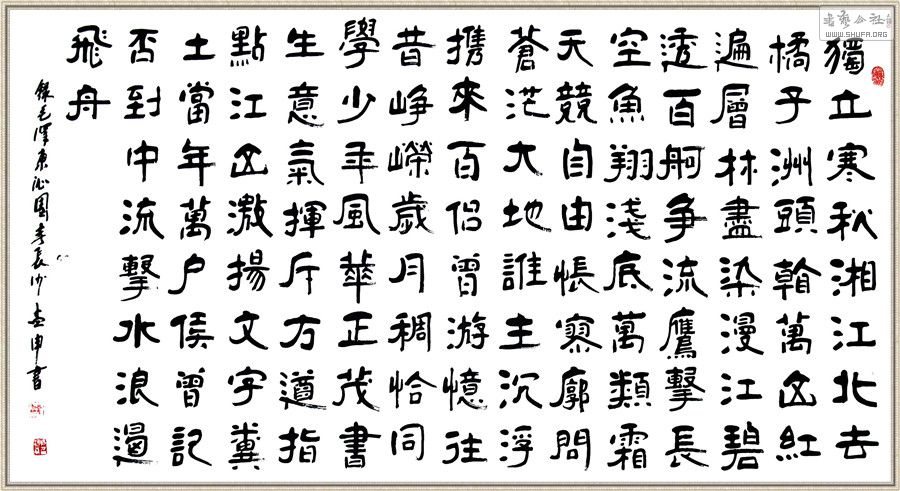 獨立寒秋湘江北去
橘子洲頭看萬山紅
遍層林盡染漫江碧
透百舸争流鷹擊長
空魚翔淺底萬類霜
天競自由悵寥廓問
蒼茫大地誰主沉浮
携來百侣曾游憶往
昔峥嶸歲月稠恰同
學少年風華正茂書
生意氣揮斥方遒指
點江山激揚文字糞
土當年萬户侯曾記
否到中流擊水浪遏
飛舟
録毛澤東沁園春長沙申書
書藝公社
WWW.SHUFA.ORG